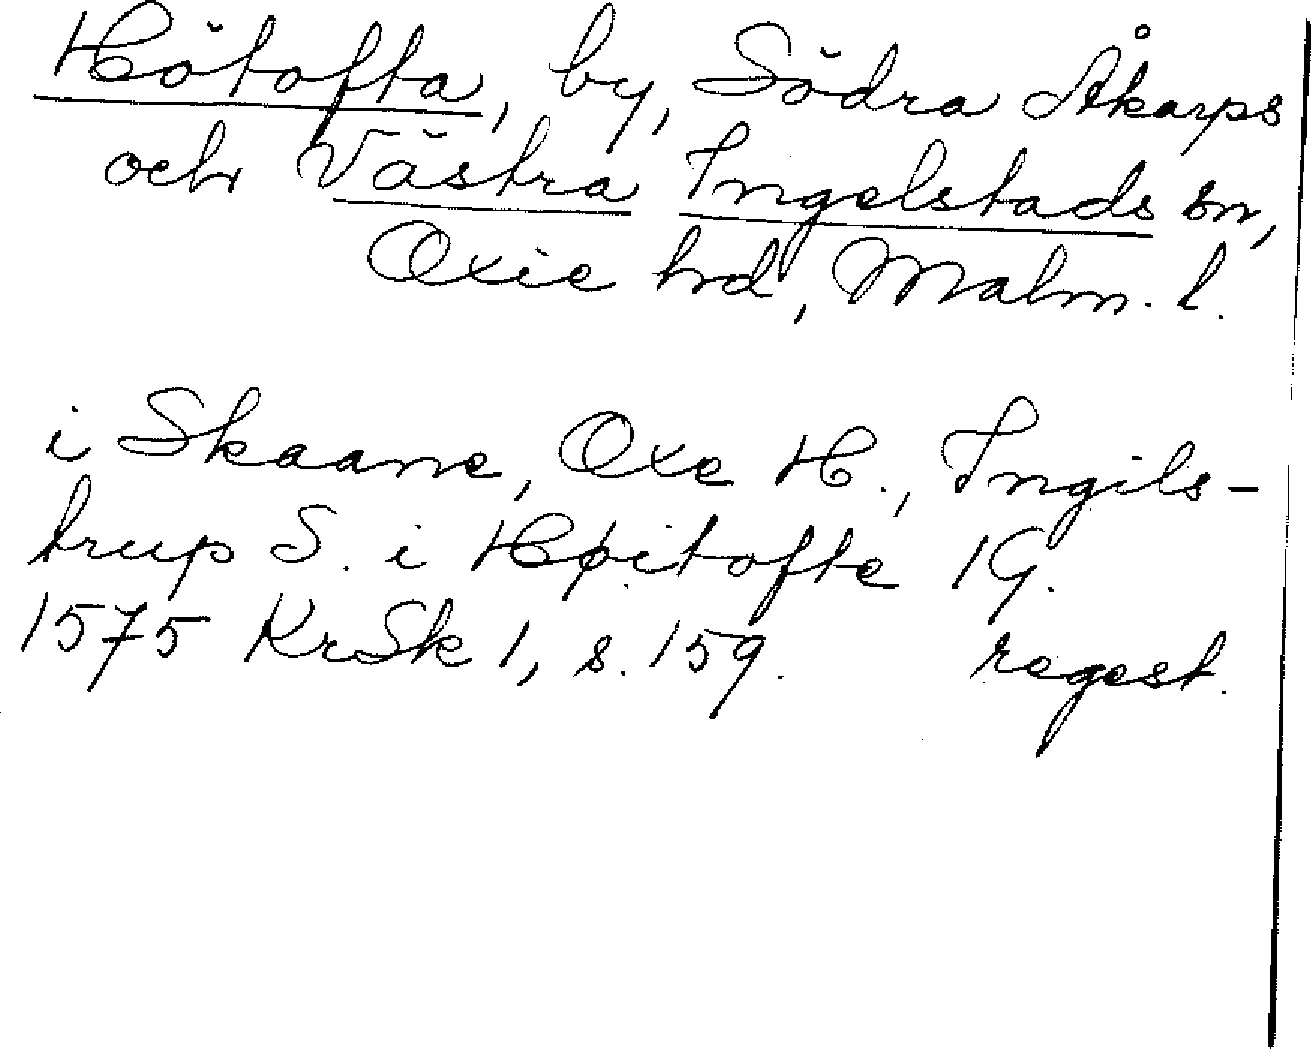 Hötofta, by, Södra Åkarps
och Västra Ingelstads sn,
Oxie hd, Malm. l.
i Skaane, Oxe H., Ingils-
trup S. i Høitofte 1G.
1575 KrSk 1, s. 159. regest.